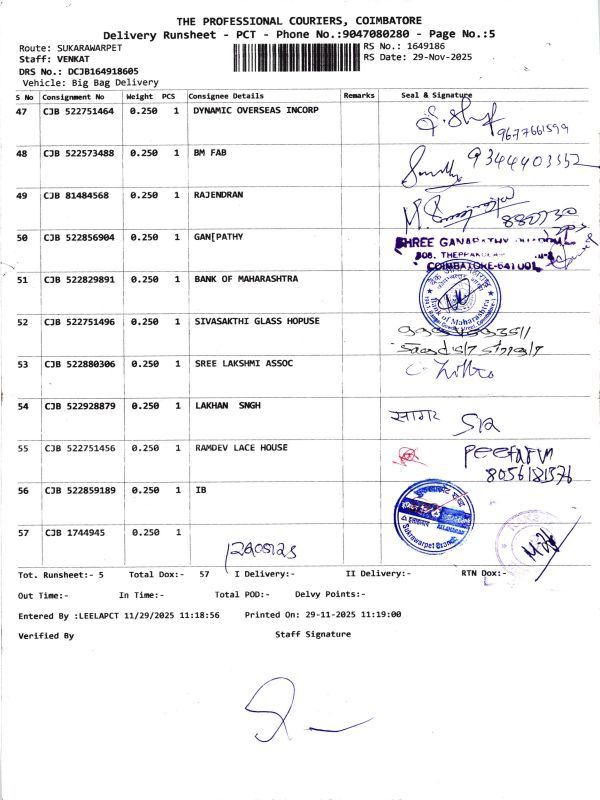 THE PROFESSIONAL COURIERS, COIMBATORE
Delivery Runsheet - PCT - Phone No.:9047080280 - Page No.:5
Route: SUKARAWARPET
RS No.: 1649186
Staff: VENKAT
RS Date: 29-Nov-2025
DRS No.: DCJB164918605
Vehicle: Big Bag Delivery
S No Consignment No Weight PCS Consignee Details Remarks Seal & Signature
47 CJB 522751464 0.250 1 DYNAMIC OVERSEAS INCORP
9677661599
48 CJB 522573488 0.250 1 BM FAB
9344403352
49 CJB 81484568 0.250 1 RAJENDRAN
50 CJB 522856904 0.250 1 GAN[PATHY
SHREE GANAPATHY
COIMBATORE-641 001
51 CJB 522829891 0.250 1 BANK OF MAHARASHTRA
Bank of Maharashtra
52 CJB 522751496 0.250 1 SIVASAKTHI GLASS HOPUSE
53 CJB 522880306 0.250 1 SREE LAKSHMI ASSOC
54 CJB 522928879 0.250 1 LAKHAN SNGH
सागर
55 CJB 522751456 0.250 1 RAMDEV LACE HOUSE
56 CJB 522859189 0.250 1 IB
ALLAHABAD
Sukrawarpet Branch
57 CJB 1744945 0.250 1
Tot. Runsheet:- 5 Total Dox:- 57 I Delivery:- II Delivery:- RTN Dox:-
Out Time:- In Time:- Total POD:- Delvy Points:-
Entered By :LEELAPCT 11/29/2025 11:18:56 Printed On: 29-11-2025 11:19:00
Verified By Staff Signature